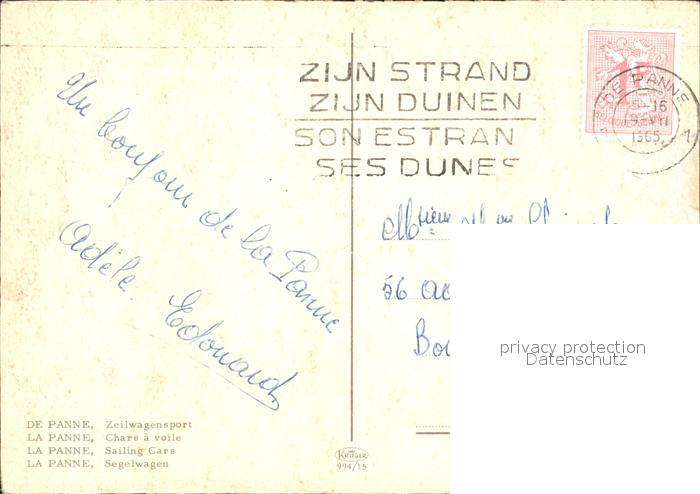 ZIJN STRAND
ZIJN DUINEN
SON ESTRAN
SES DUNES
DE PANNE
15-16
1965
Un bonjour de la Panne
Adèle. Edouard
56
privacy protection
Datenschutz
DE PANNE, Zeilwagensport
LA PANNE, Chars à voile
LA PANNE, Sailing Cars
LA PANNE, Segelwagen
KRÜGER
994/15